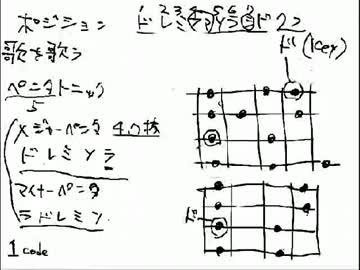 ポジション
歌を歌う
ペンタトニック
5
メジャーペンタ 4,7抜
ドレミソラ
マイナーペンタ
ラドレミソ
1 code
1 2 3 4 5 6 7
ドレミファソラシド
ド (key)
ド